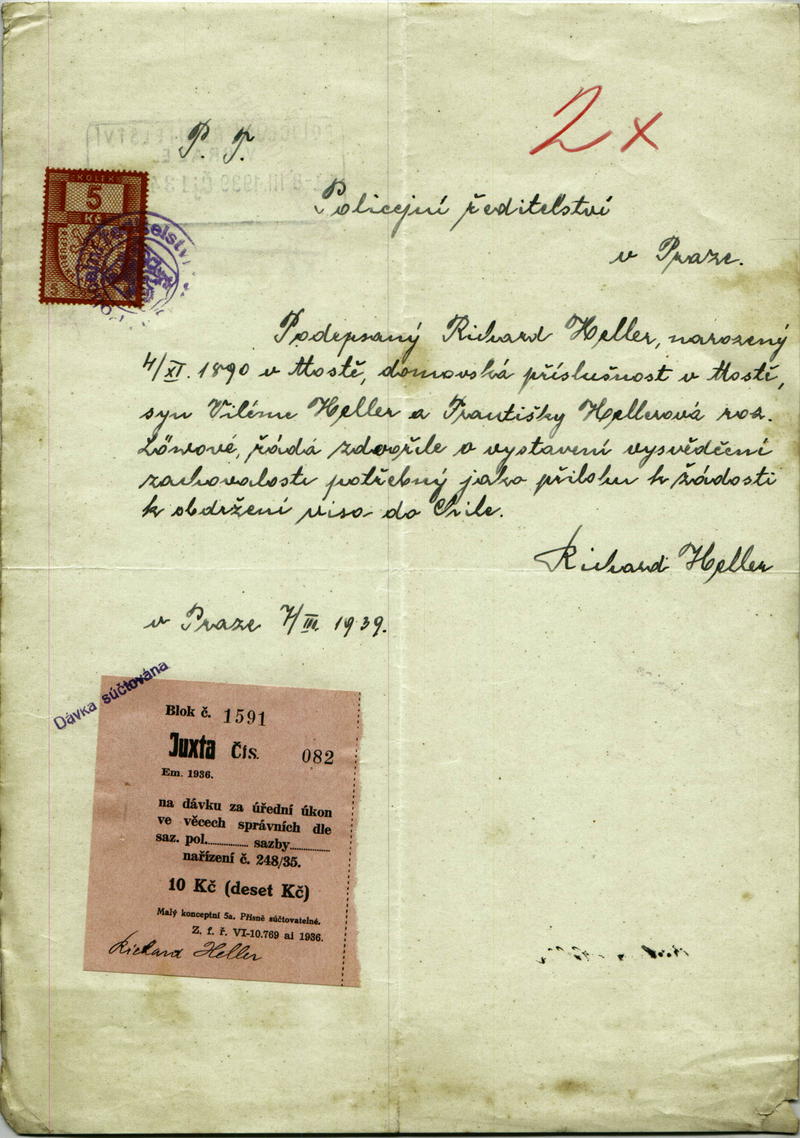 2x
P. T.
KOLEK
5
Kč
Policejní ředitelství
v Praze.
Podepsaný Richard Heller, narozený
4/XI. 1890 v Mostě, domovská příslušnost v Mostě,
syn Viléma Heller a Františky Hellerová roz.
Löwové, řádá zdvořile o vystavení vysvědčení
zachovalosti potřebný jako přílohu k žádosti
k obdržení visa do Chile.
Richard Heller
v Praze 7/III 1939.
Dávka súčtována
Blok č. 1591
Juxta Čís. 082
Em. 1936.
na dávku za úřední úkon
ve věcech správních dle
saz. pol............. sazby............
nařízení č. 248/35.
10 Kč (deset Kč)
Malý konceptní 5a. Přísně súčtovatelné.
Z. f. ř. VI-10.769 ai 1936.
Richard Heller